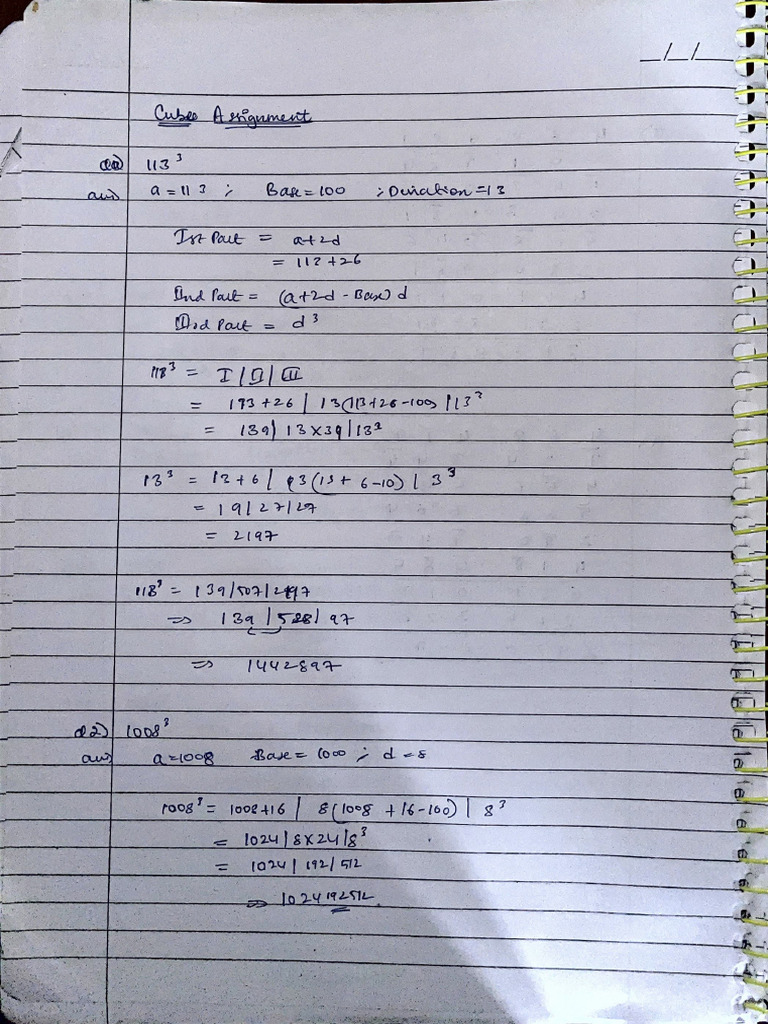 _/_/_
Cubes Assignment
Q1) 113³
ans) a = 113 ; Base = 100 ; Duviation = 13
Ist Part = a+2d
= 113 + 26
IInd Part = (a+2d - Base) d
IIIrd Part = d³
113³ = I / II / III
= 113 + 26 | 13(113+26-100) | 13³
= 139 | 13×39 | 13³
13³ = 13+6 | 3(13+ 6-10) | 3³
= 19/27/27
= 2197
113³ = 139/507/2197
⇒ 139 | 528 | 97
⇒ 1442897
Q2) 1008³
ans) a=1008 Base = 1000 ; d = 8
1008³ = 1008+16 | 8(1008 + 16-100) | 8³
= 1024 | 8×24 | 8³
= 1024 | 192 / 512
⇒ 1024192512.